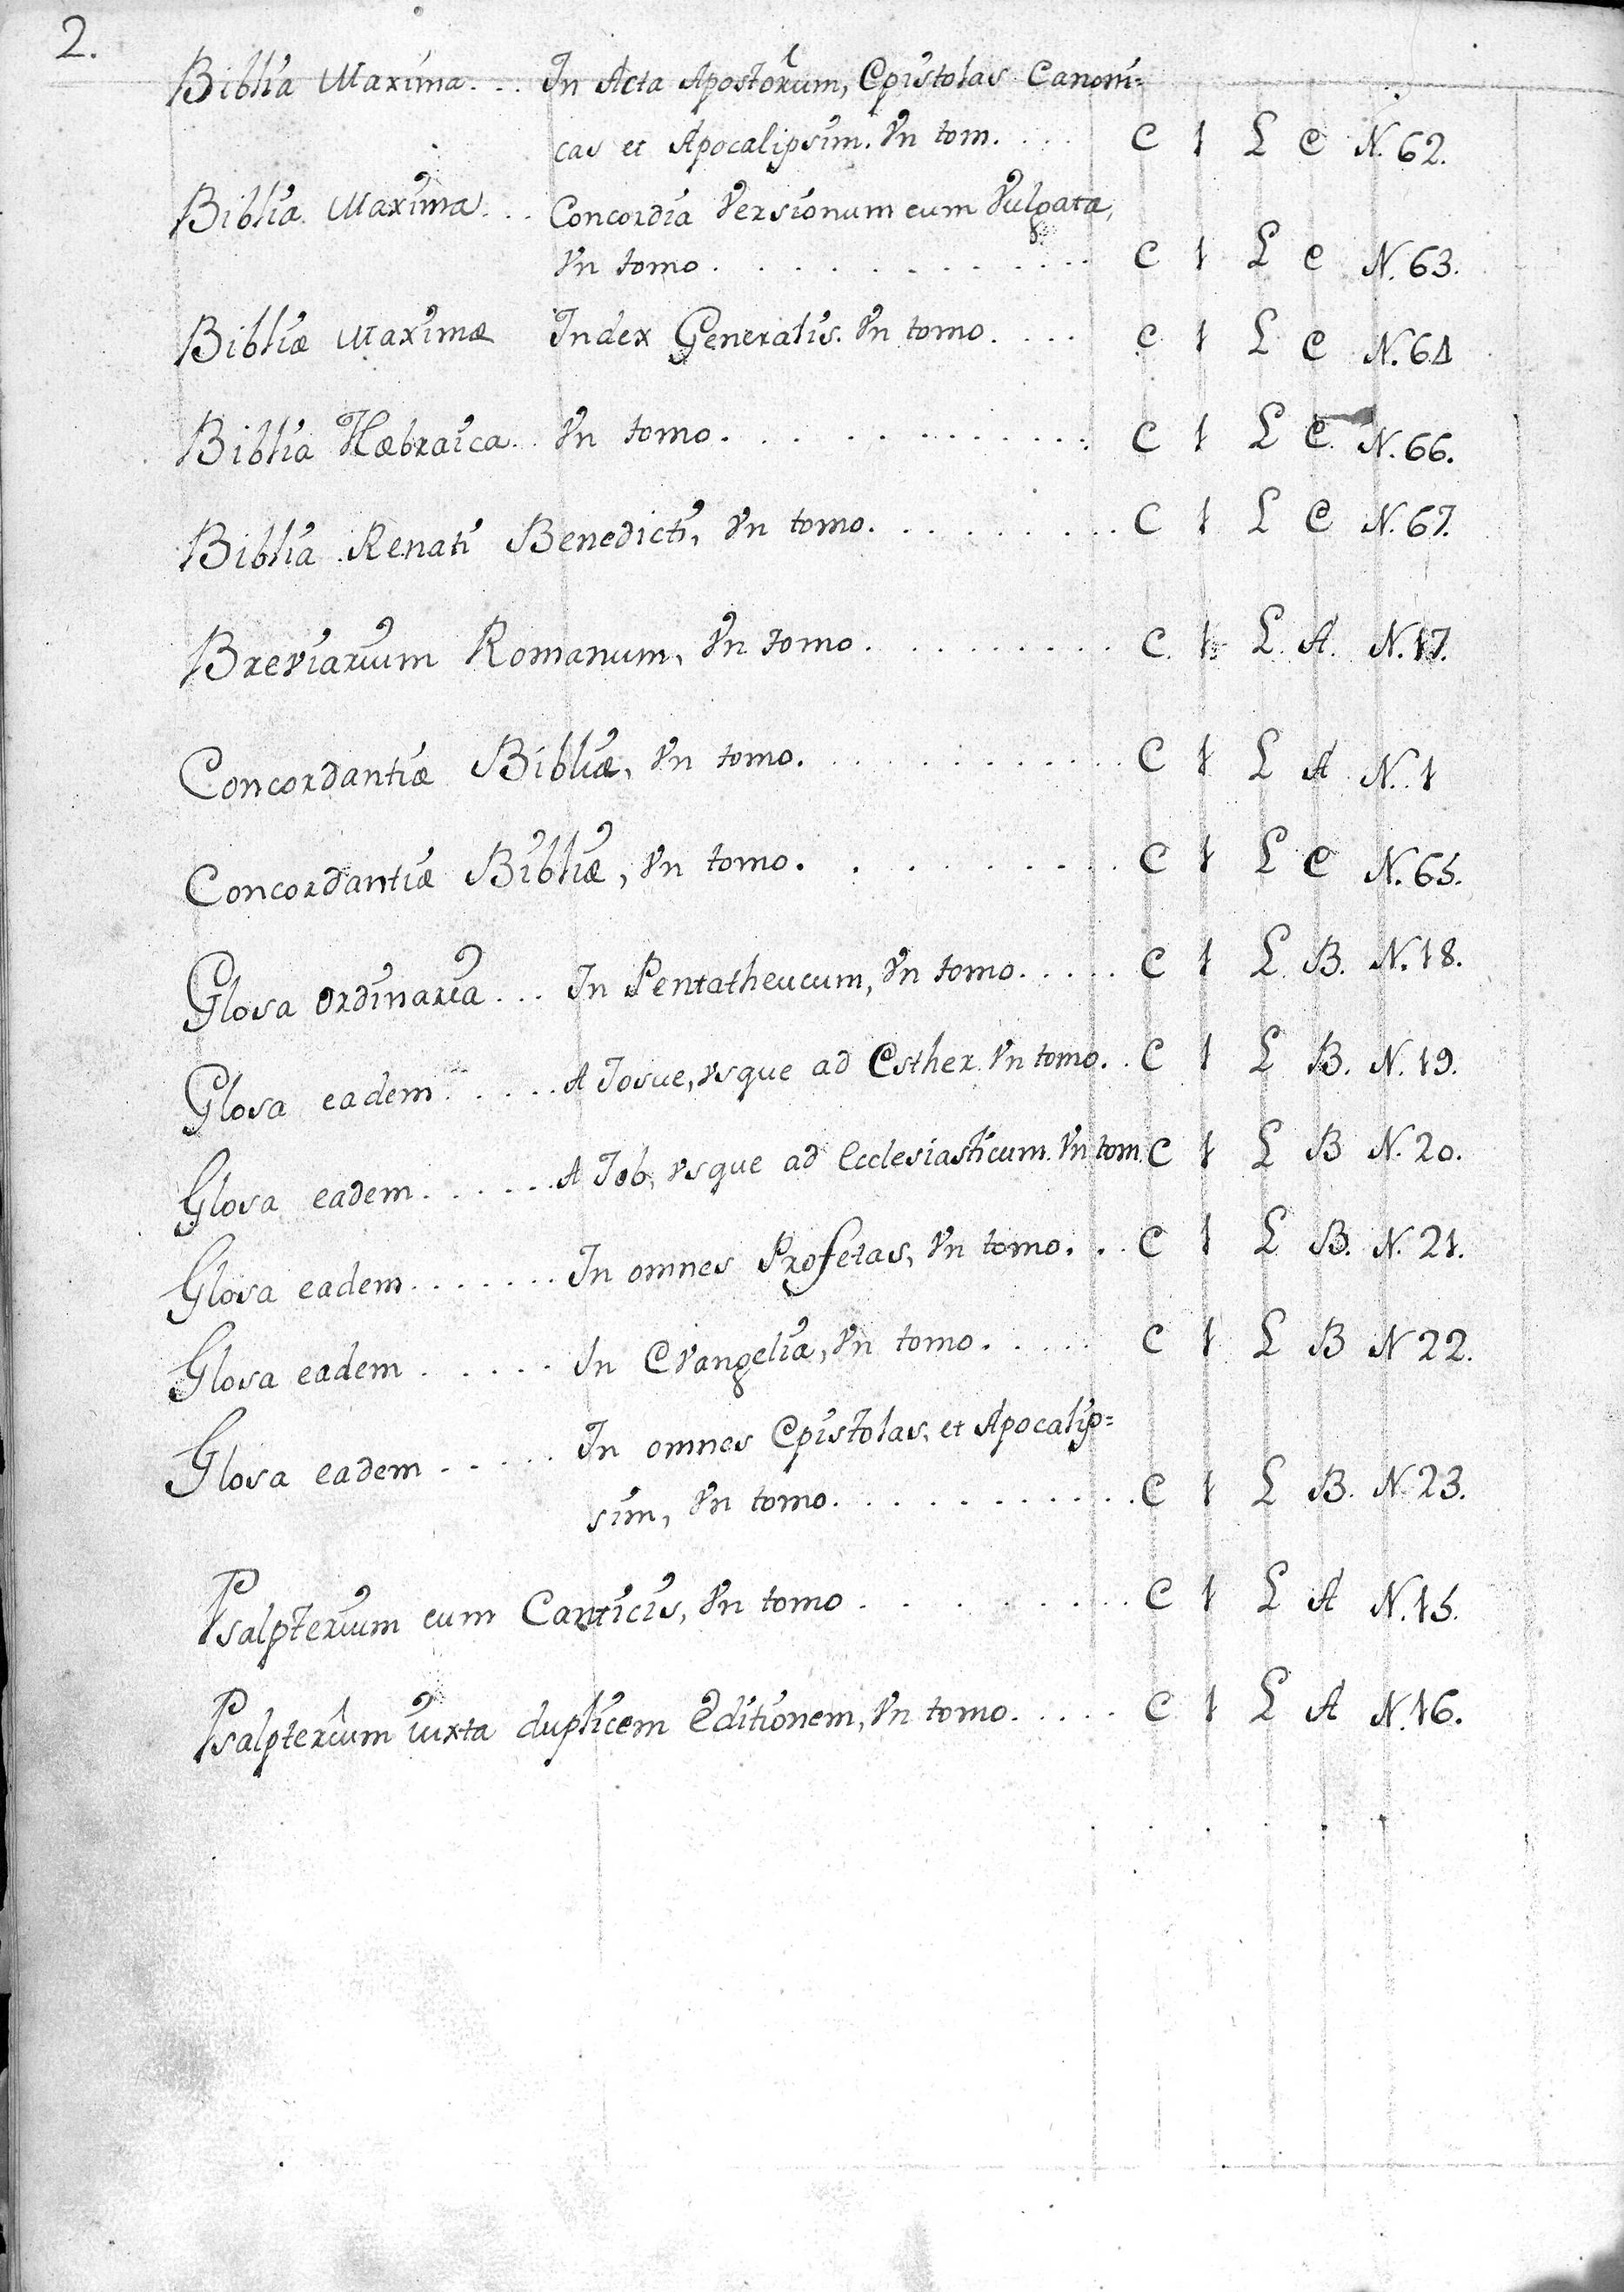 2.
Biblia Maxima. . . In Acta Apostolorum, Epistolas Canoni=
cas et Apocalipsim. Vn tom. . . . C 1 L C N. 62.
Biblia Maxima. . . Concordia Versionum cum Vulgata,
Vn tomo . . . . . . . . . . . . C 1 L C N. 63.
Bibliæ Maximæ Index Generalis. Vn tomo. . . . C 1 L C N. 64
Biblia Hæbraica. . Vn tomo. . . . . . . . . . . C 1 L C. N. 66.
Biblia Renati Benedicti, Vn tomo. . . . . . . . . C 1 L C N. 67.
Breviarium Romanum, Vn tomo. . . . . . . . . C. 1. L. A. N. 17.
Concordantiæ Bibliæ, Vn tomo. . . . . . . . . . . C 1 L A N. 1
Concordantiæ Bibliæ, Vn tomo. . . . . . . . . C 1 L C N. 65.
Glosa ordinaria. . . In Pentatheucum, Vn tomo. . . . . C 1 L. B. N. 18.
Glosa eadem. . . . . . A Josue, vsque ad Esther. Vn tomo. . C 1 L B. N. 19.
Glosa eadem. . . . . . A Job, vsque ad Ecclesiasticum. Vn tom. C 1 L B N. 20.
Glosa eadem. . . . . . . In omnes Profetas, Vn tomo. . . C 1 L B. N. 21.
Glosa eadem . . . . . In Evangelia, Vn tomo. . . . . C 1 L B N 22.
Glosa eadem . . . . . In omnes Epistolas, et Apocalip=
sim, Vn tomo. . . . . . . . . . . C 1 L B. N. 23.
Psalpterium cum Canticis, Vn tomo . . . . . . . . . C 1 L A N. 15.
Psalpterium iuxta duplicem Editionem, Vn tomo. . . . . C 1 L A N. 16.